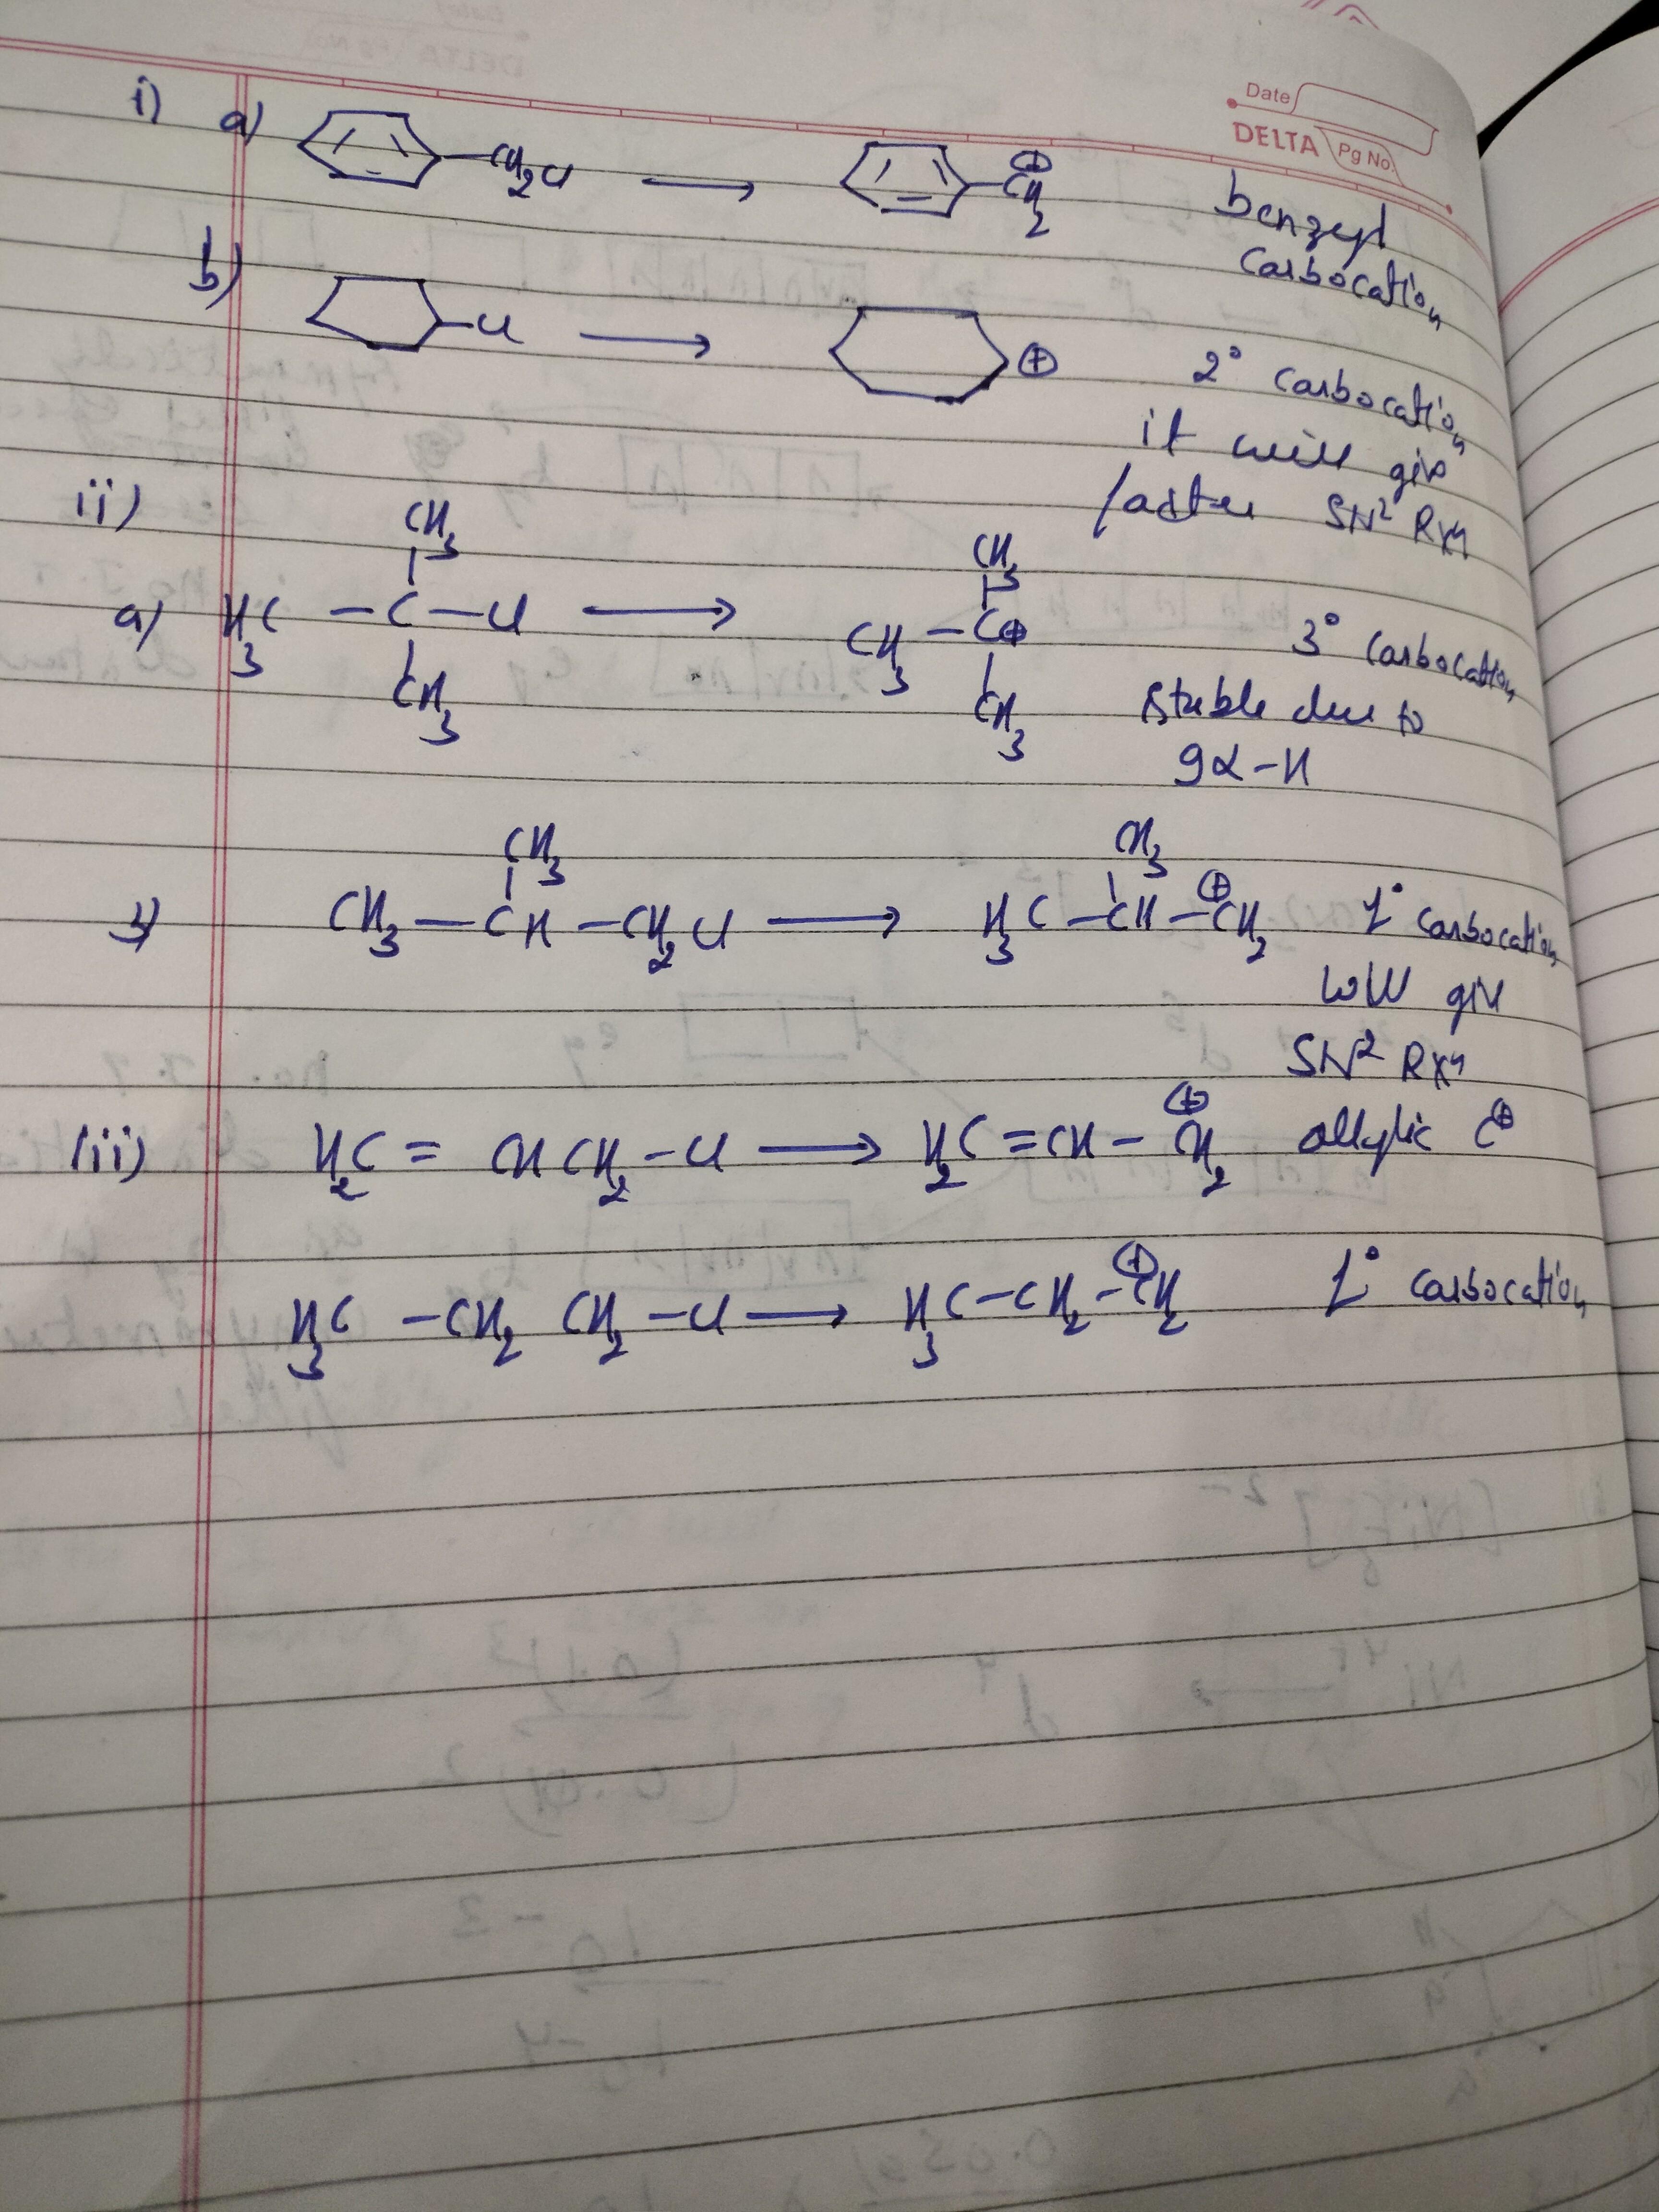 Date
DELTA Pg No.
i) a) CH2Cl ⟶ ⊕ CH2 benzyl
carbocation
b) Cl ⟶ ⊕ 2° carbocation
it will give
faster SN2 Rxn
ii)
CH3 CH3
a) H3C – C – Cl ⟶ CH3 – C⊕ 3° carbocation
CH3 CH3 stable due to
9α-H
CH3 CH3
CH3 – CH – CH2Cl ⟶ H3C – CH – ⊕CH2 1° carbocation
will give
SN2 Rxn
(iii) H2C = CHCH2 – Cl ⟶ H2C = CH – ⊕CH2 allylic C⊕
H3C – CH2 CH2 – Cl ⟶ H3C – CH2 – ⊕CH2 1° carbocation